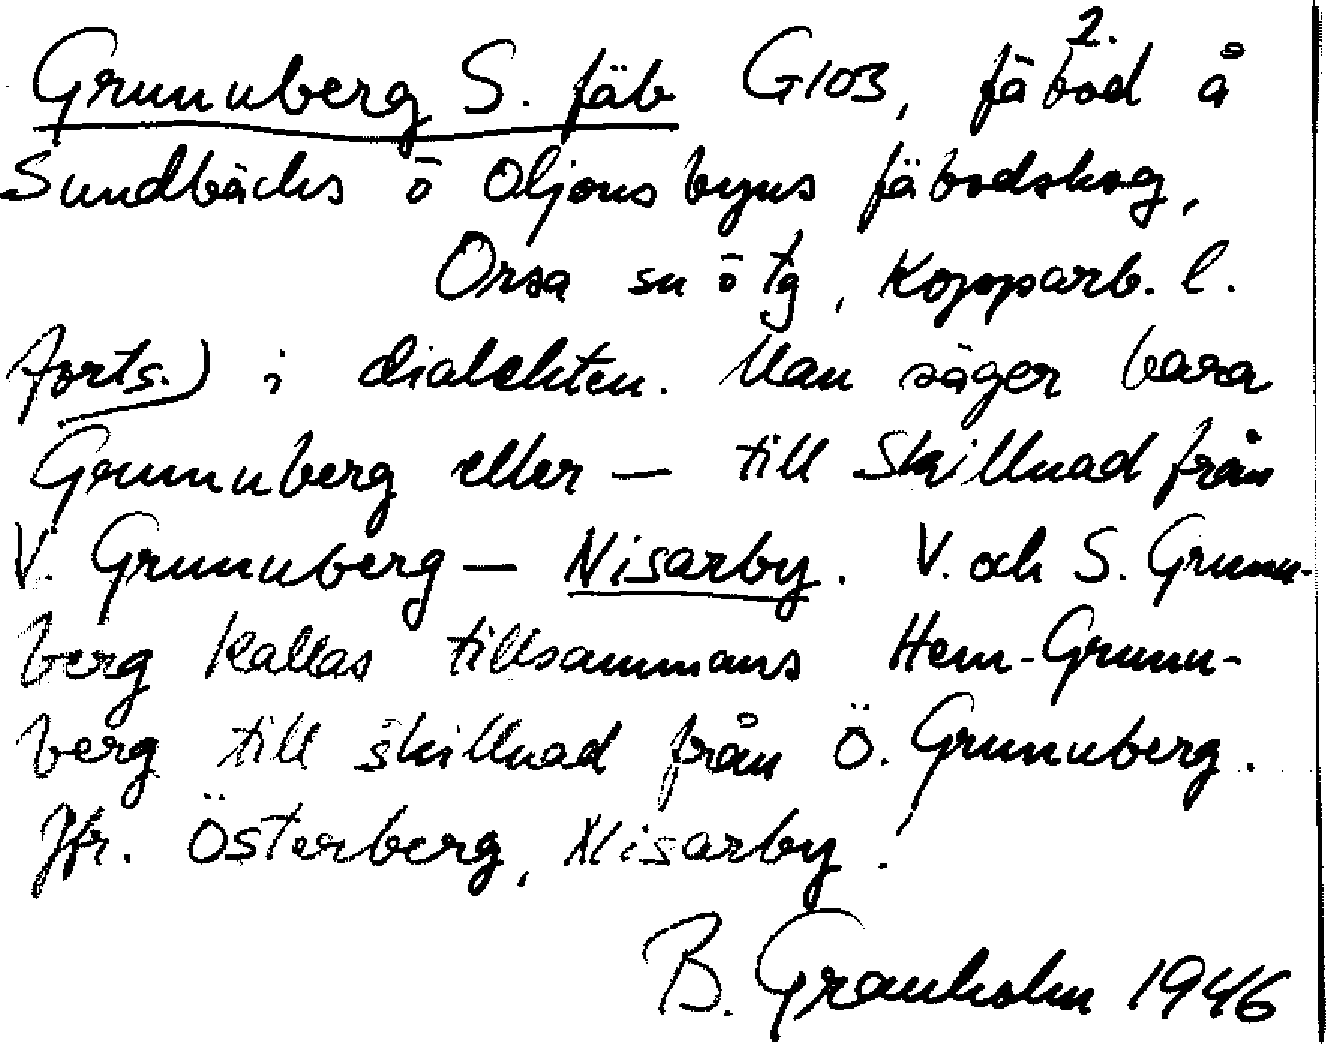 2.
Grunuberg S. fäb G103, fäbod å
Sundbäcks o Oljonsbyns fäbodskog,
Orsa sn o tg, Kopparb. l.
Forts.) i dialekten. Man säger bara
Grunuberg eller — till skillnad från
V. Grunuberg — Nisarby. V. och S. Grunu-
berg kallas tillsammans Hem-Grunu-
berg till skillnad från Ö. Grunuberg.
Jfr. Österberg, Nisarby!
B. Granholm 1946